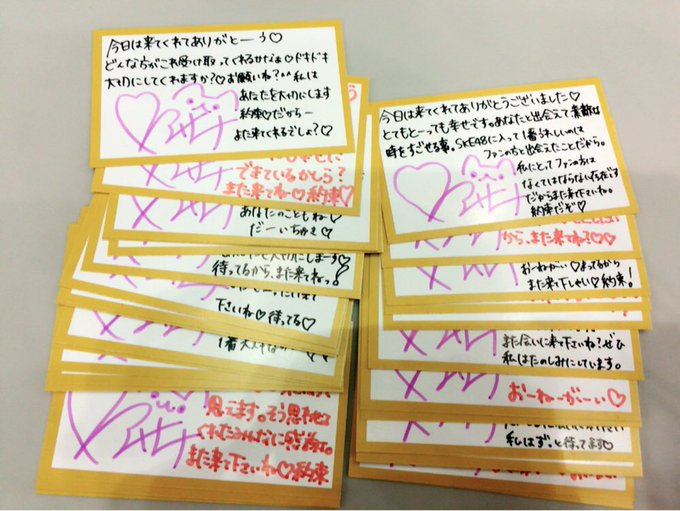 今日は来てくれてありがとーう♡
どんな方がこれ受け取ってくれるかなぁ♡ドキドキ
大切にしてくれますか?♡お願いね?^^私は
あなたを大切にします
約束♡だからー
また来てくれるでしょ?♡
できているかしら?
また来てね♡約束♡
あなたのこともね♡
だーいちゅき♡
待ってるから、また来てねっ!
下さいね♡待ってる♡
見えます。そう思わせて
くれたみんなに感謝。
また来て下さいね♡約束
今日は来てくれてありがとうございました♡
とてもとーっても幸せです。あなたと出会えて素敵な
時をすごせる事。SKE48に入って1番うれしいのは
ファンの方と出会えたことだから。
私にとってファンの方は
なくてはならない存在です
だからまた来て下さいね。
約束だぞ♡
から、また来てね?♡♡
おーねがーい♡まってるから
また来て下しゃい♡約束!
また会いに来て下さいね?ぜひ
私はたのしみにしています。
おーねーがーい♡
私はず。と待ってます♡